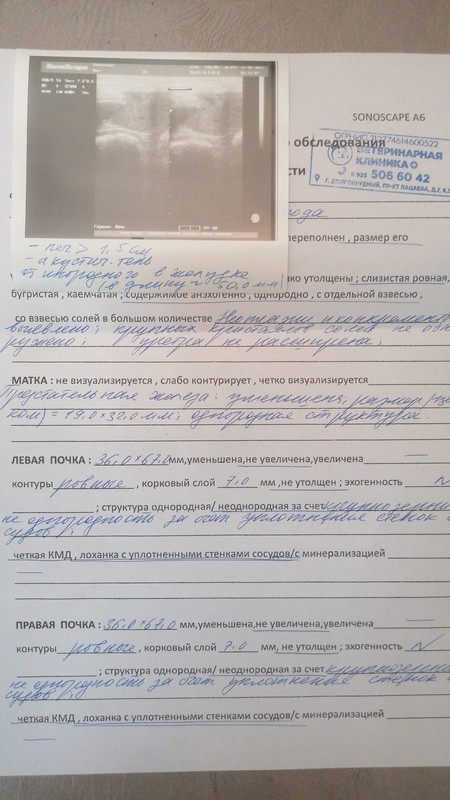 SonoScape
SONOSCAPE A6
о обследования
ОГРНИП 312774614600522
ВЕТЕРИНАРНАЯ
КЛИНИКА
8 925 506 60 42
г. ДОЛГОПРУДНЫЙ, ПР-КТ ПАЦАЕВА, Д.7, К.
сти
года
- пег > 1,5 см
- акустич. тень
от инородного в желудке
(в длину ≈ 50,0 мм)
переполнен , размер его
ко утолщены ; слизистая ровная,
бугристая , каемчатая ; содержимое анэхогенно , однородно , с отдельной взвесью ,
со взвесью солей в большом количестве
выявлено; крупных кристаллов солей не обна
ружено; уретра не расширена;
МАТКА : не визуализируется , слабо контурирует , четко визуализируется
Предстательная железа: уменьшена, размер
= 19.0×32.0 мм; однородная структура.
ЛЕВАЯ ПОЧКА : 36.0×67.0 мм,уменьшена,не увеличена,увеличена
контуры ровные , корковый слой 7.0 мм ,не утолщен ; эхогенность N
; структура однородная/ неоднородная за счет
не однородность за счет уплотнения стенок со
судов;
четкая КМД , лоханка с уплотненными стенками сосудов/с минерализацией
ПРАВАЯ ПОЧКА : 36.0×67.0 мм,уменьшена,не увеличена,увеличена
контуры ровные , корковый слой 7.0 мм, не утолщен ; эхогенность N
; структура однородная/ неоднородная за счет
не однородность за счет уплотнения стенок со
судов;
четкая КМД , лоханка с уплотненными стенками сосудов/с минерализацией